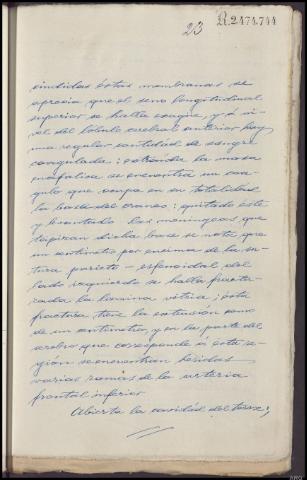 23
R.2474.744
cindidas éstas membranas se
aprecia que el seno longitudinal
superior se halla exangüe, y á ni-
vel del lóbulo cerebral anterior hay
una regular cantidad de sangre
coagulada: extraida la masa
encefalica se encuentra un coa-
gulo que ocupa en su totalidad
la base del craneo: quitado éste
y levantado las meninges que
tapizan dicha base se nota que
un centimetro por encima de la su-
tura parieto-esfenoidal del
lado izquierdo se halla fractu-
rada la lamina vitrea; ésta
fractura tiene la extension como
de un centimetro, y en la parte del
cerebro que corresponde á esta re-
gión se encuentran heridas
varias ramas de la arteria
frontal inferior
Abierta la cavidad del torax,